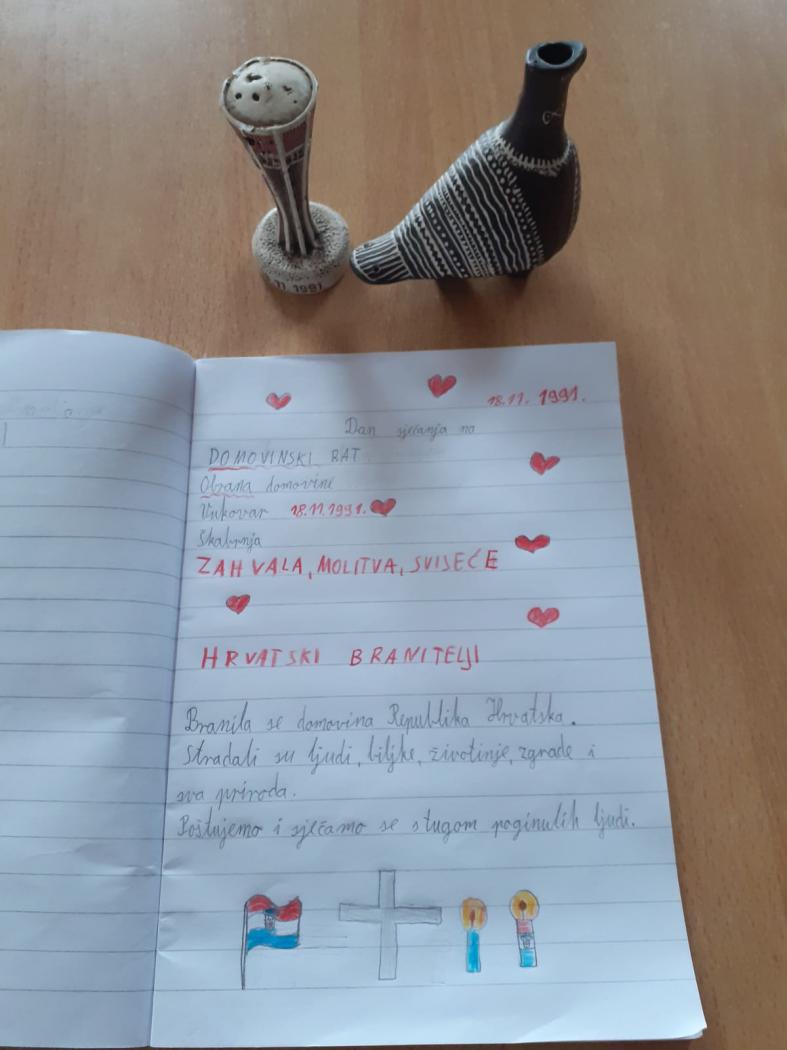 11. 1991
18.11. 1991.
Dan sjećanja na
DOMOVINSKI RAT
Obrana domovine
Vukovar 18.11.1991.
Škabrnja
ZAHVALA, MOLITVA, SVIJEĆE
HRVATSKI BRANITELJI
Branila se domovina Republika Hrvatska.
Stradali su ljudi, biljke, životinje, zgrade i
sva priroda.
Poštujemo i sjećamo se s tugom poginulih ljudi.